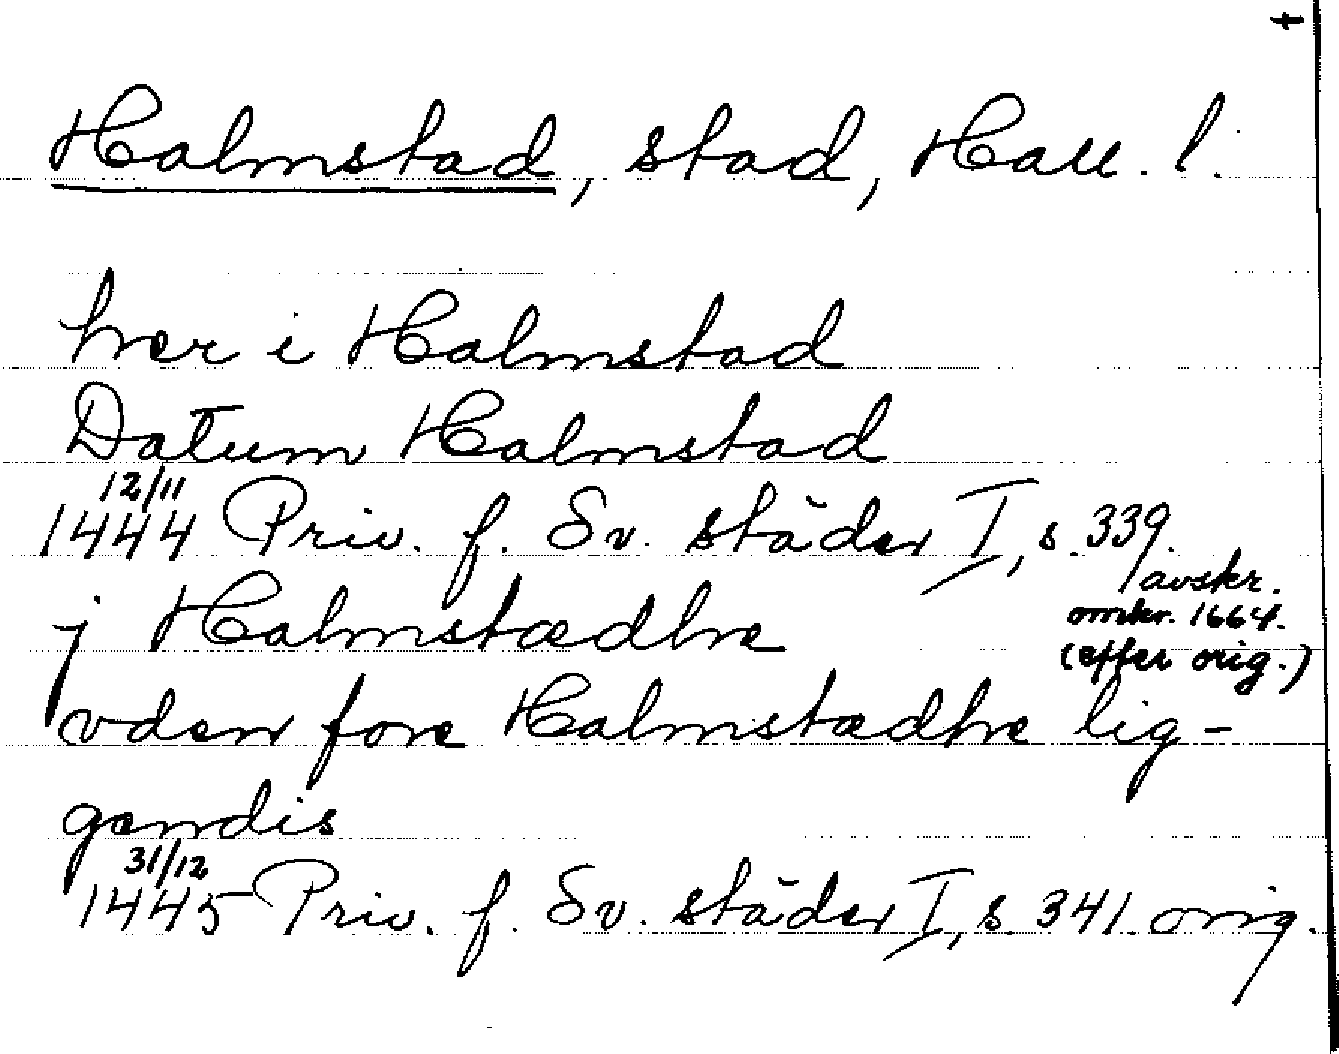 Halmstad, stad, Hall. l.
hær i Halmstad
Datum Halmstad
12/11
1444 Priv. f. Sv. städer I, s. 339.
avskr.
omkr. 1664.
(efter orig.)
j Halmstædhe
vden fore Halmstædhe lig-
gendis
31/12
1445 Priv. f. Sv. städer I, s. 341. orig.